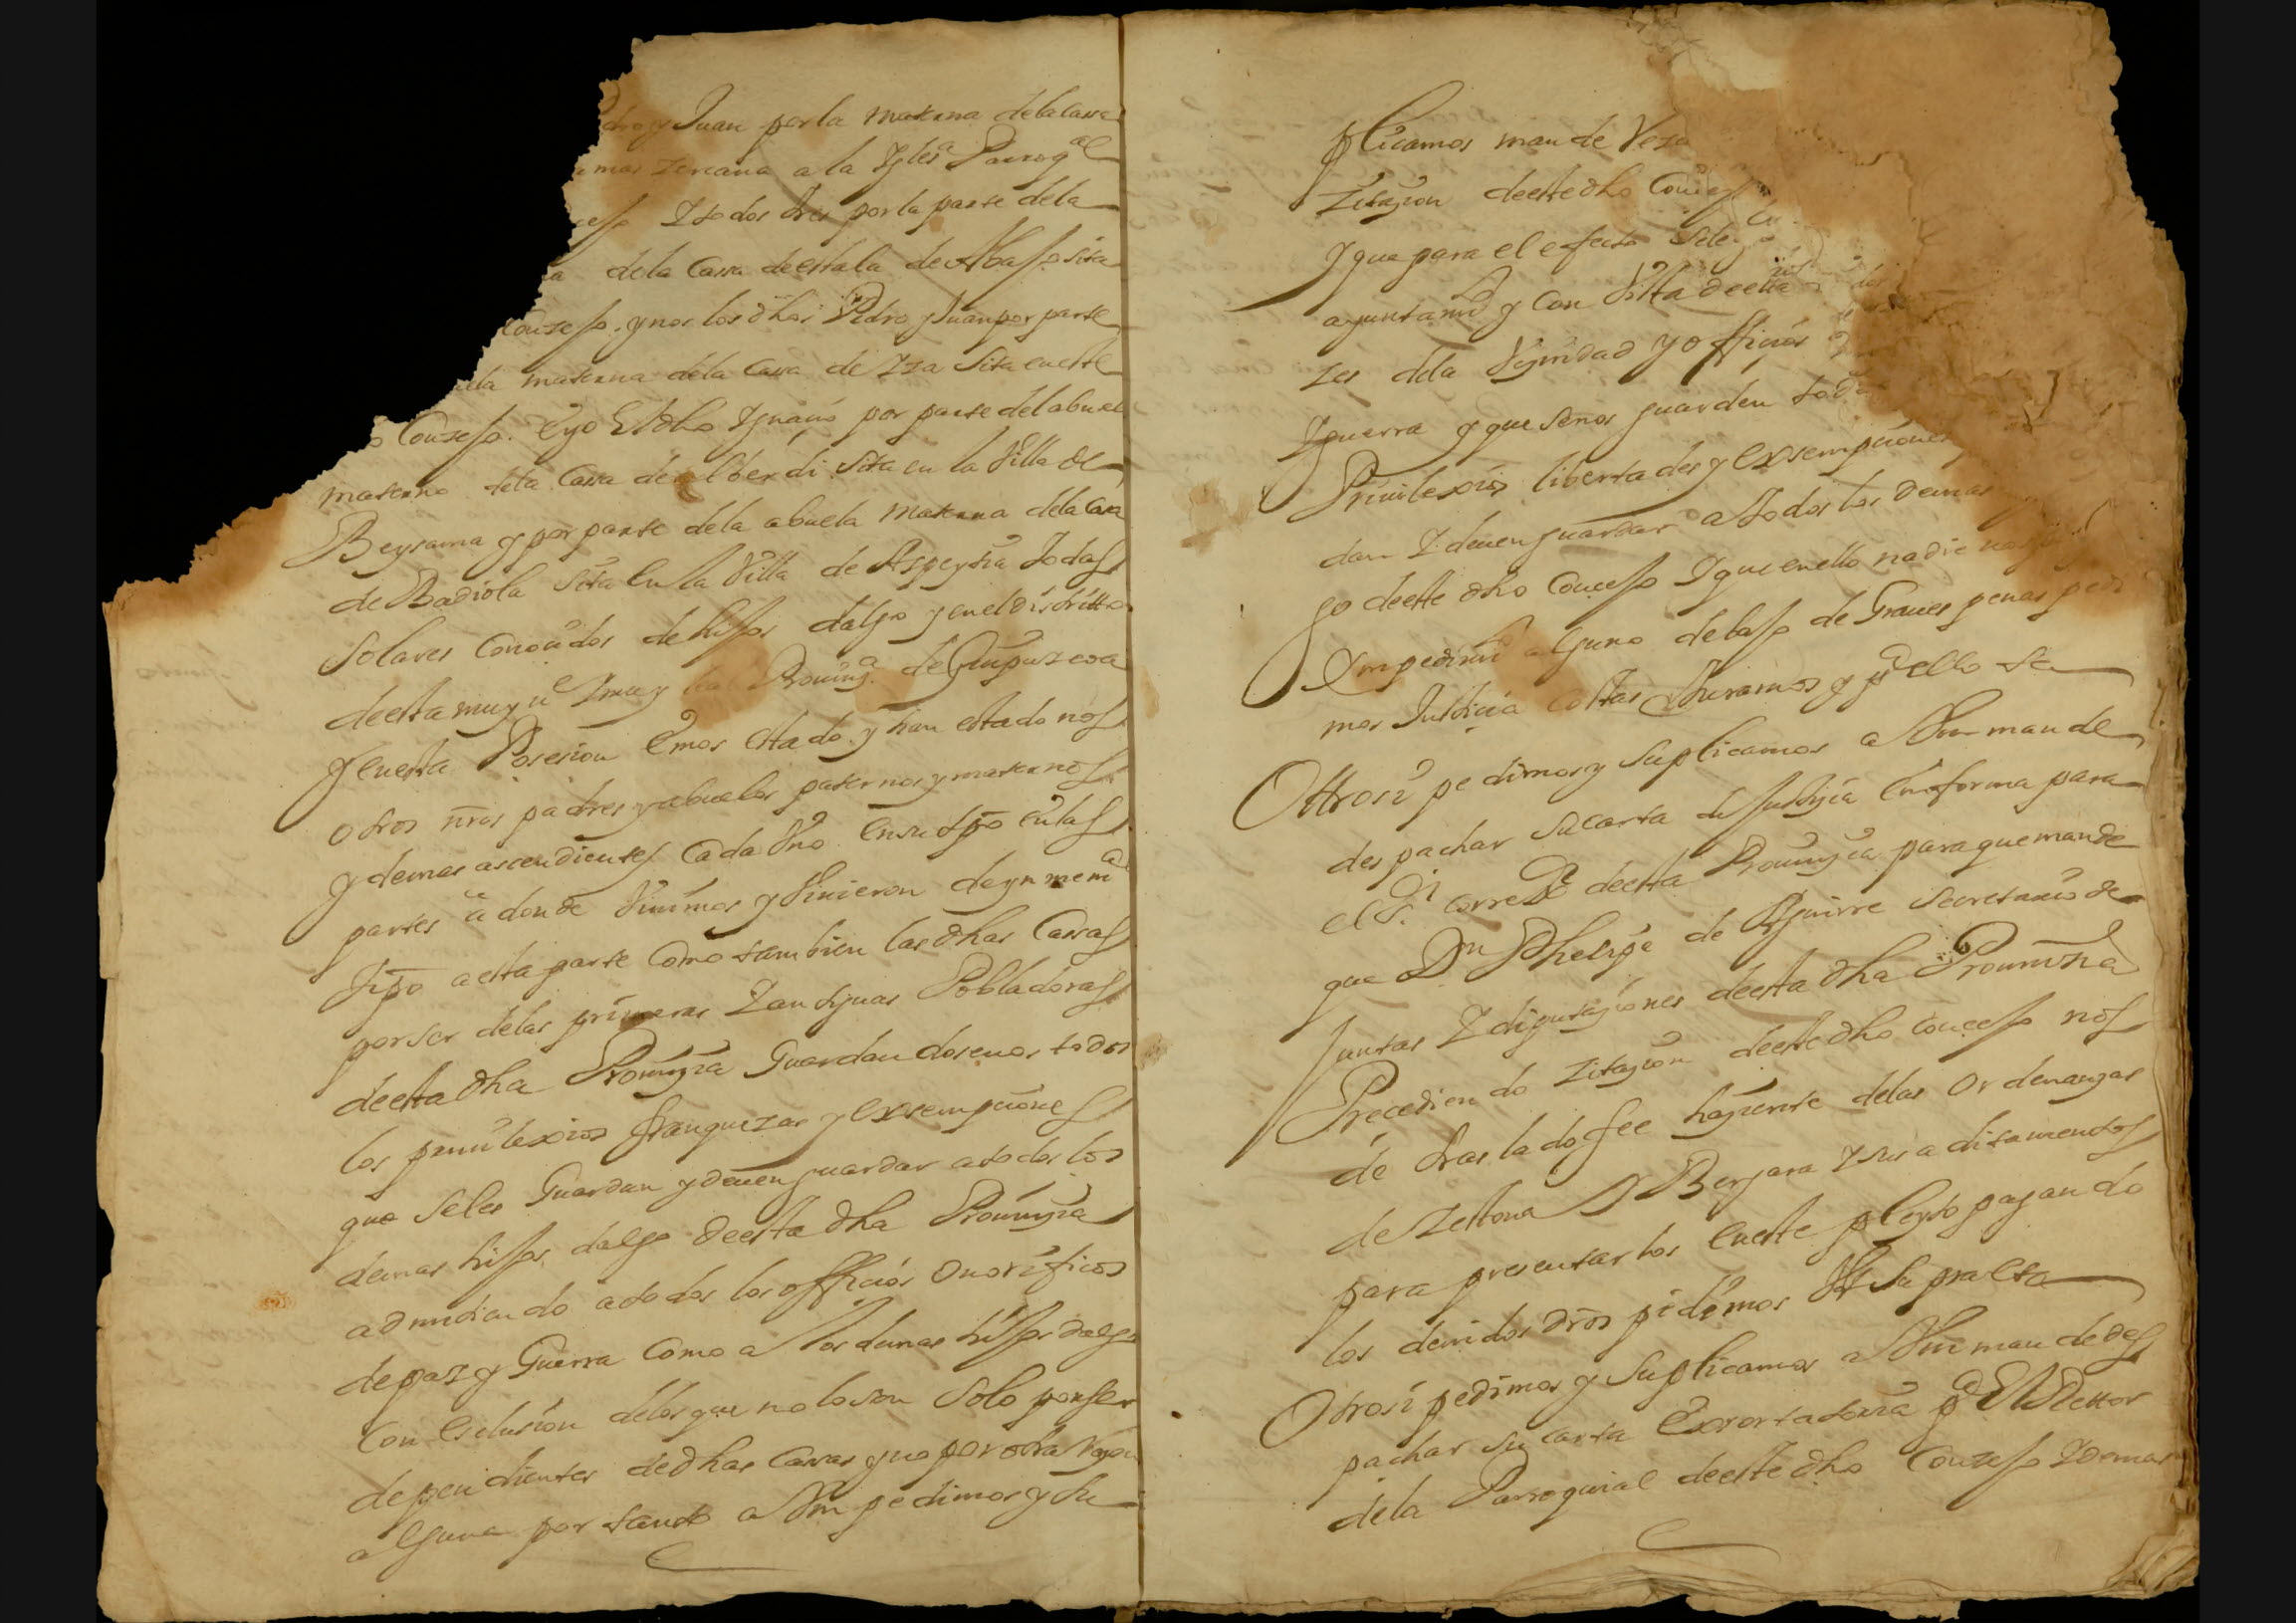 dro y Juan por la materna de la cassa
mas zercana a la Ygles.ª Parroq.ªl
ceso Y todos tres por la parte de la
a de la Cassa de estala de Abasso sita
Conzejo. y nos los dhos Pedro y Juan por parte
materna de la Cassa de Yza sita en este
Conzejo. E yo El dho Ygnaçio por parte del abuelo
materno de la Cassa de Alberdi sita en la Villa de
Beysama y por parte de la abuela materna de la Casa
de Badiola sita en la Villa de Aspeytia Todas
Solares Conoçidos de hijos dalgo y en el distritto
de esta muy n.e Y muy leal Prouinz.ª de Guipuzcoa
Y en esta Posesion Emos estado y han estado nos
otros nros padres y abuelos paternos y maternos
y demas ascendientes Cada Vno en su tpo en las
partes a donde Viuimos y Viuieron de ynmem.al
tpo a esta parte Como tambien las dhas Casas
por ser de las primeras Y antiguas Pobladoras
de esta dha Prouinçia Guardandosenos todos
los preuilexios franquezas y Exsempçiones
que Seles Guardan y deuen guardar a todos los
demas hijos dalgo de esta dha Prouinçia
admitiendo a todos los offiçios onorificos
de paz y Guerra Como a los demas hijos dalgo
Con Esclusion de los que no lo son Solo por ser
dependientes de dhas Cassas y no por otra raçon
alguna por tanto a Vm pedimos y su
plicamos mande
Zitaçion de este dho Conçejo
Y que para el efecto Sele
ayuntami.to y Con Vista de esta
zes de la Vezindad y offiçios
Y guerra y que se nos guarden tod
Priuilexios libertades y Exsempçiones
dan Y deuen guardar a todos los demas
go de este dho Conçejo Y que en ello nadie nos
Ympedim.to alguno debaso de Graues penas pedi
mos Justiçia Costas Juramos y p.a ello &a
Ottrosi pedimos y Suplicamos a Vm mande
despachar su carta de Justiçia en forma para
el S.r corre.or de esta Prouinçia para que mande
que D.n Phelipe de Aguirre Secretario de
Juntas Y diputaçiones de esta dha Prouinzia
Precediendo Zitaçion de este dho Conçejo nos
de traslado fee haçiente de las ordenanzas
de Zestona Y Bergara Y sus aditamentos
para presentarlos En este pleyto pagando
los deuidos dros pidimos Vt Supra Etta
Otrosi pedimos y Suplicamos a Vm mande des
pachar su carta Exsortatoria p.a El Rettor
de la Parroquial de este dho Conzejo Y demas